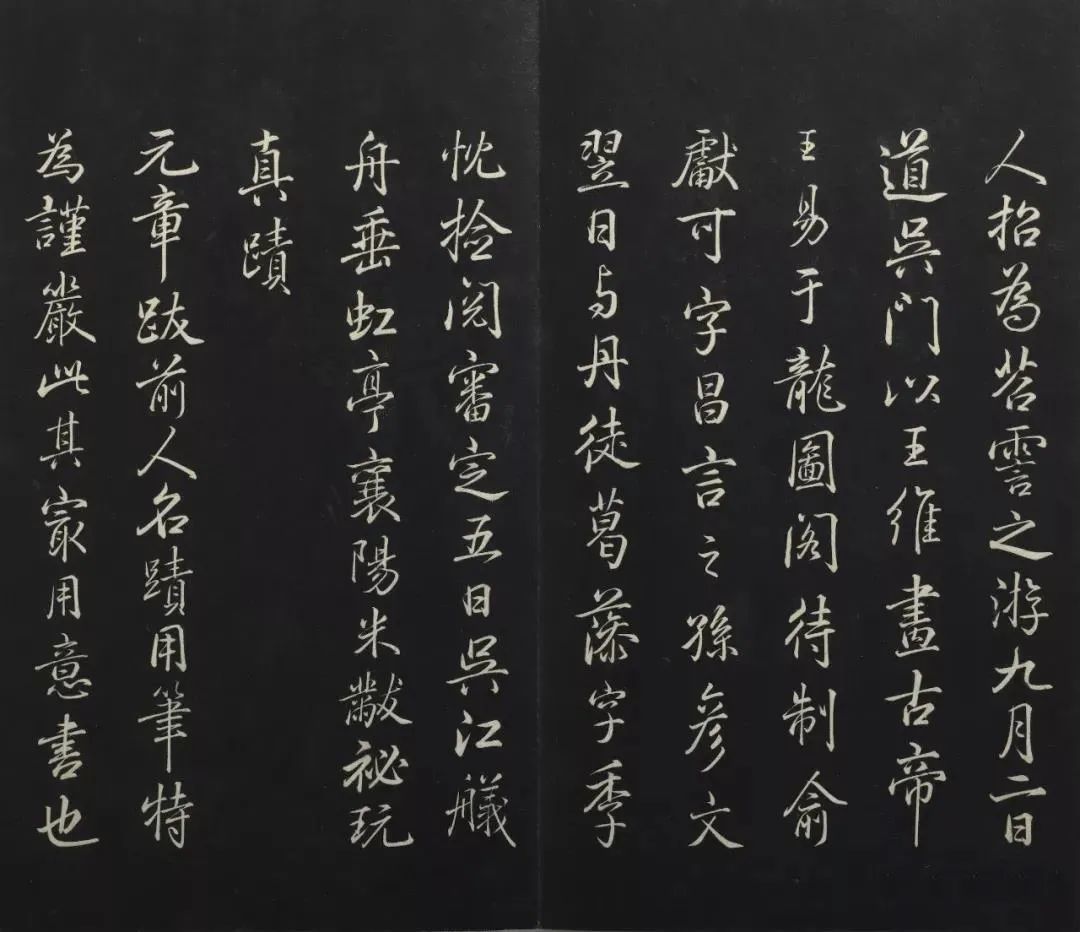 人招為苕霅之游九月二日
道吳門以王維畫古帝
王易于龍圖閣待制俞
獻可字昌言之孫彥文
翌日与丹徒葛藻字季
忱捡閱審定五日吳江艤
舟垂虹亭襄陽米黻祕玩
真蹟
元章跋前人名蹟用筆特
為謹嚴此其冣用意書也